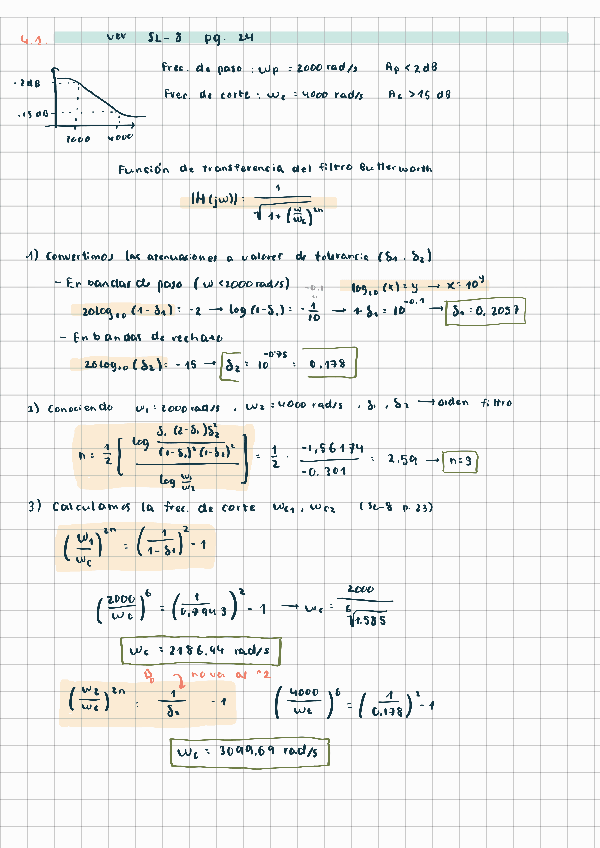 4.1. ver SL-8 pg. 24
Frec. de paso : ωp = 2000 rad/s Ap < 2dB
Frec. de corte : ωc = 4000 rad/s Ac > 15 dB
-2dB
-15 dB
2000 4000
Función de transferencia del filtro Butterworth
|H(jω)| = 1 / √(1 + (ω/ωc)^2n)
1) Convertimos las atenuaciones a valores de tolerancia (δ1, δ2)
- En bandas de paso (ω < 2000 rad/s) -0.1 log10 (x) = y → x = 10^y
20log10 (1-δ1) = -2 → log (1-δ1) = -1/10 → 1-δ1 = 10^-0.1 → δ1 = 0,2057
- En bandas de rechazo
20log10 (δ2) = -15 → δ2 = 10^-0.75 = 0,178
2) Conociendo ω1 = 2000 rad/s , ω2 = 4000 rad/s , δ1 , δ2 → orden filtro
n = 1/2 [ log (δ1 (2-δ1) δ2^2 / (1-δ1)^2 (1-δ2)^2) / log ω1/ω2 ] = 1/2 · -1,56174 / -0.301 = 2,59 → n=3
3) Calculamos la frec. de corte ωc1 , ωc2 (SL-8 p.23)
(ω1/ωc)^2n = (1 / 1-δ1)^2 - 1
(2000/ωc)^6 = (1 / 0,7943)^2 - 1 → ωc = 2000 / 6√1.585
ωc = 2186,44 rad/s
no va al ^2
(ω2/ωc)^2n = 1/δ2 - 1 (4000/ωc)^6 = (1/0,178)^2 - 1
ωc = 3099,69 rad/s